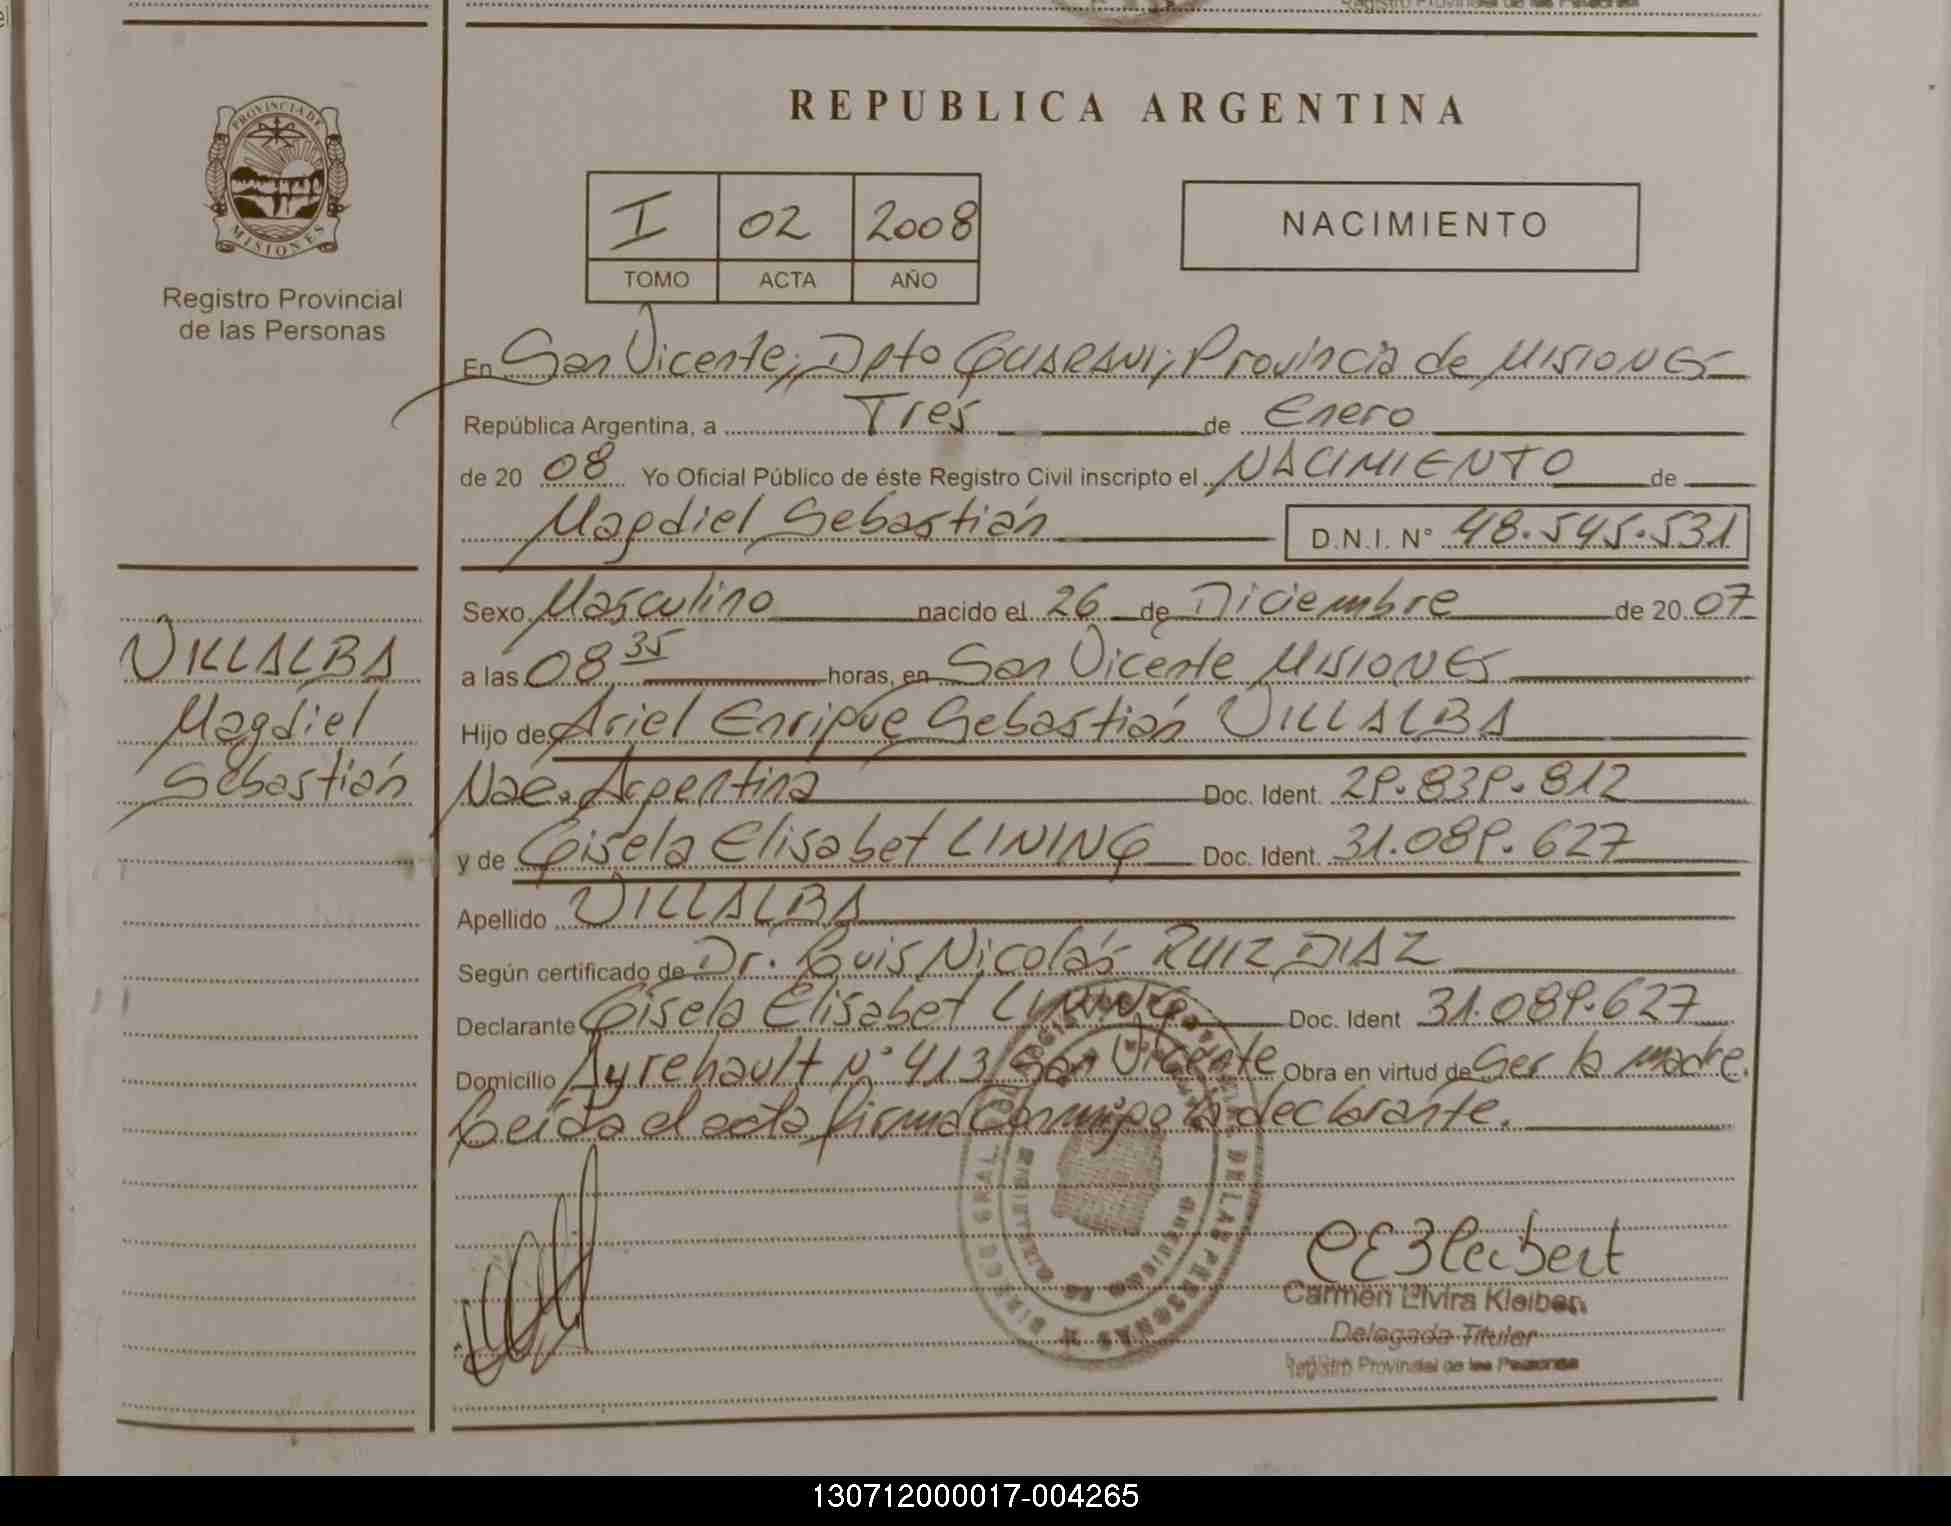 REPUBLICA ARGENTINA
PROVINCIA DE
MISIONES
Registro Provincial
de las Personas
I 02 2008
TOMO ACTA AÑO
NACIMIENTO
En San Vicente, Dpto GUARANI, Provincia de MISIONES
República Argentina, a Tres de Enero
de 20 08 Yo Oficial Público de éste Registro Civil inscripto el NACIMIENTO de
Magdiel Sebastián D.N.I. N° 48.545.531
VILLALBA
Magdiel
Sebastián
Sexo Masculino nacido el 26 de Diciembre de 20 07
a las 08 35 horas, en San Vicente MISIONES
Hijo de Ariel Enrique Sebastián VILLALBA
Nac. Argentina Doc. Ident. 29.839.812
y de Gisela Elisabet LINING Doc. Ident. 31.089.627
Apellido VILLALBA
Según certificado de Dr. Luis Nicolás RUIZ DIAZ
Declarante Gisela Elisabet LINING Doc. Ident 31.089.627
Domicilio Ayrehault N° 413 San Vicente Obra en virtud de Ser la madre.
Leída el acta firma conmigo la declarante.
DE LAS PERSONAS
Carmen Elvira Kleiber
Delegada Titular
Registro Provincial de las Personas
130712000017-004265